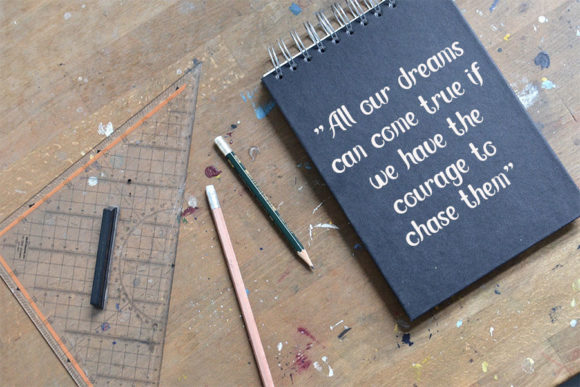 ”All our dreams
can come true if
we have the
courage to
chase them”